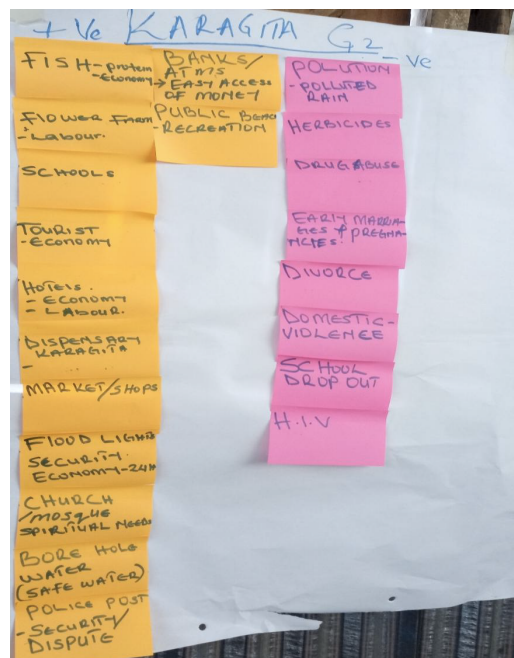 +Ve KARAGITA G2 -Ve
FISH-protein
-economy
Flower Farm
-Labour.
SCHOOLS
TOURIST
-Economy
HOTELS.
- ECONOMY
- LABOUR.
DISPENSARY
KARAGITA
-
MARKET/SHOPS
FLOOD LIGHTS
SECURITY.
ECONOMY-24H
CHURCH
/MOSQUE
SPIRITUAL NEEDS
BORE HOLE
WATER
(SAFE WATER)
POLICE POST
-SECURITY/
DISPUTE
BANKS/
ATMS
→ EASY ACCESS
OF MONEY
PUBLIC BEACH
-RECREATION
POLLUTION
-POLLUTED
RAIN
HERBICIDES
DRUG ABUSE
EARLY MARRIA-
GES & PREGNA-
NCIES.
DIVORCE
DOMESTIC-
VIOLENCE
SCHOOL
DROP OUT
H.I.V